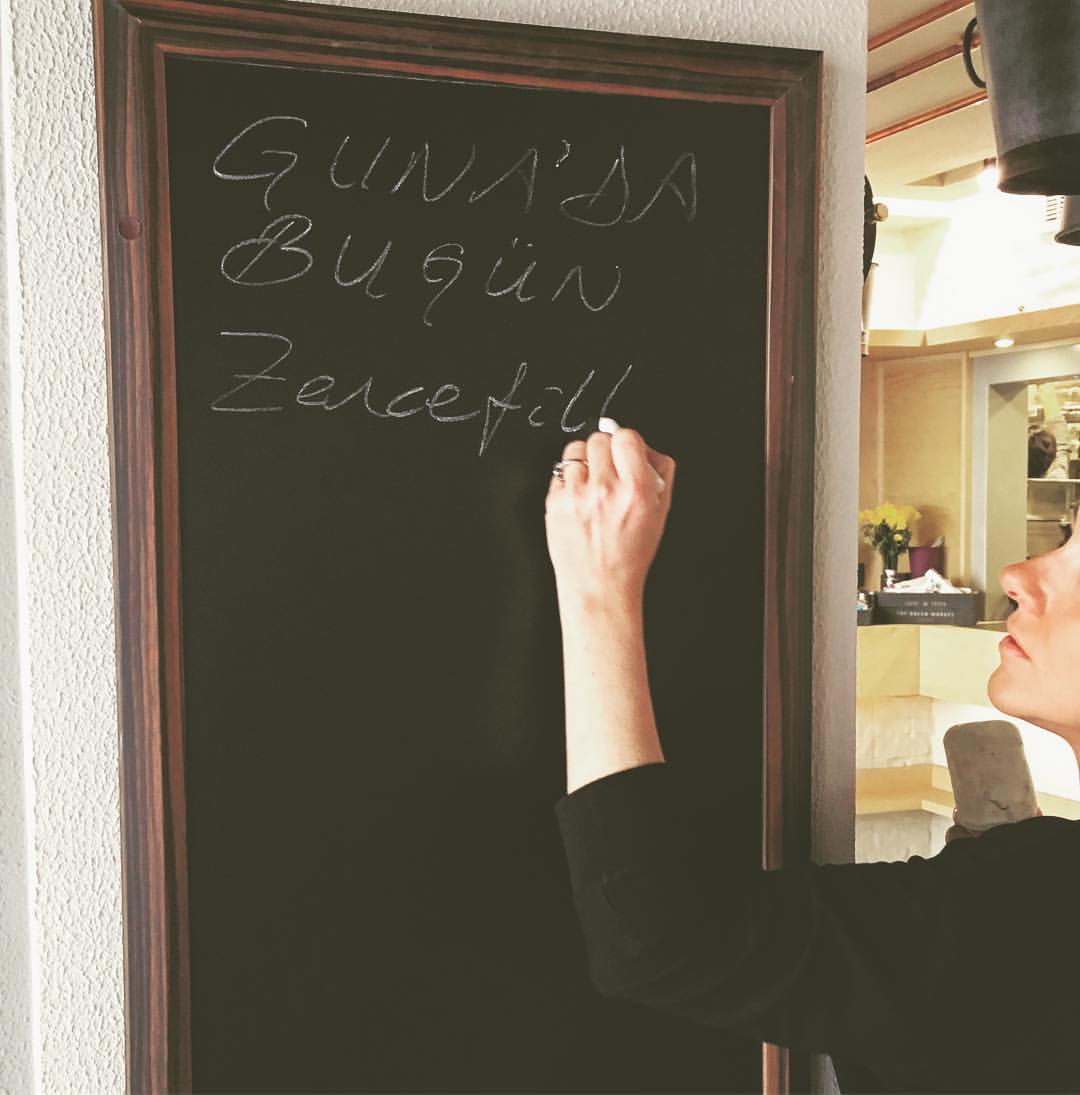 GUNA'DA
BUGÜN
Zencefill